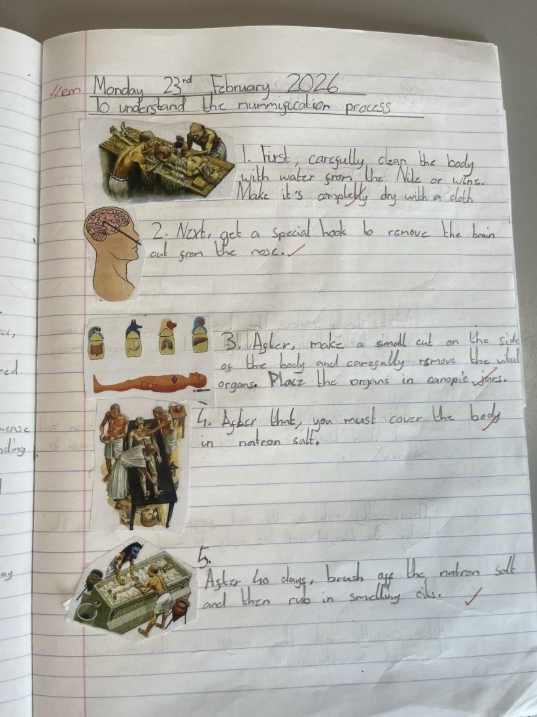 Monday 23rd February 2026
To understand the mummification process
1. First, carefully clean the body
with water from the Nile or wine.
Make it's completly dry with a cloth
2. Next, get a special hook to remove the brain
out from the nose.
3. After, make a small cut on the side
of the body and carefully remove the vital
organs. Place the organs in canopic jars.
4. After that, you must cover the body
in natron salt.
5.
After 40 days, brush off the natron salt
and then rub in smelling oils.